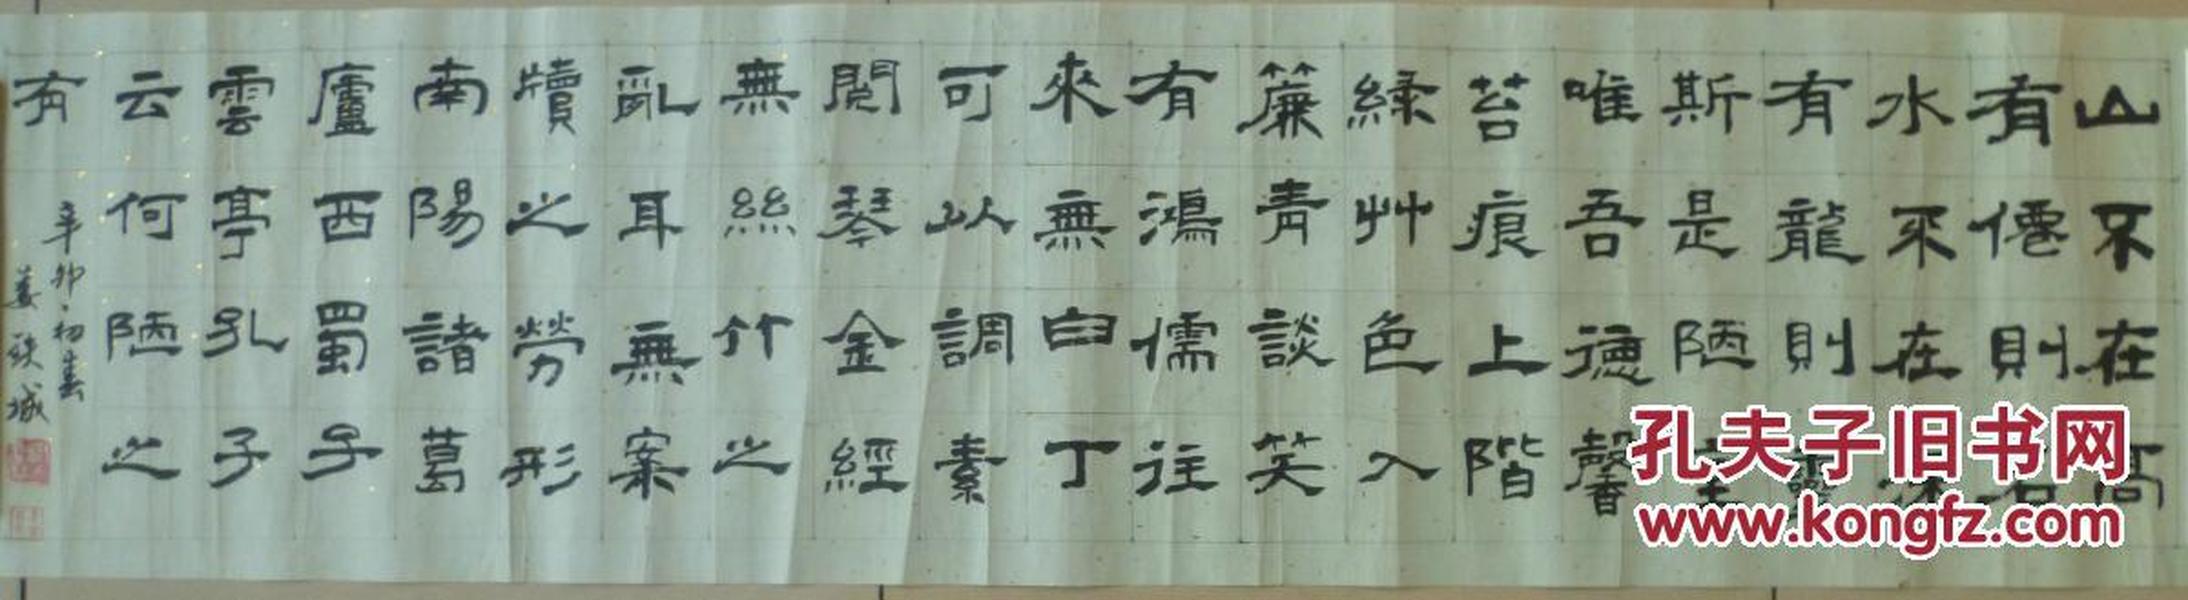 山不在高
有僊則名
水不在深
有龍則靈
斯是陋室
唯吾德馨
苔痕上階
緑艸色入
簾青談笑
有鴻儒往
來無白丁
可以調素
閱琴金經
無絲竹之
亂耳無案
牘之勞形
南陽諸葛
廬西蜀子
雲亭孔子
云何陋之
有
辛卯初春
姜
城
孔夫子旧书网
www.kongfz.com